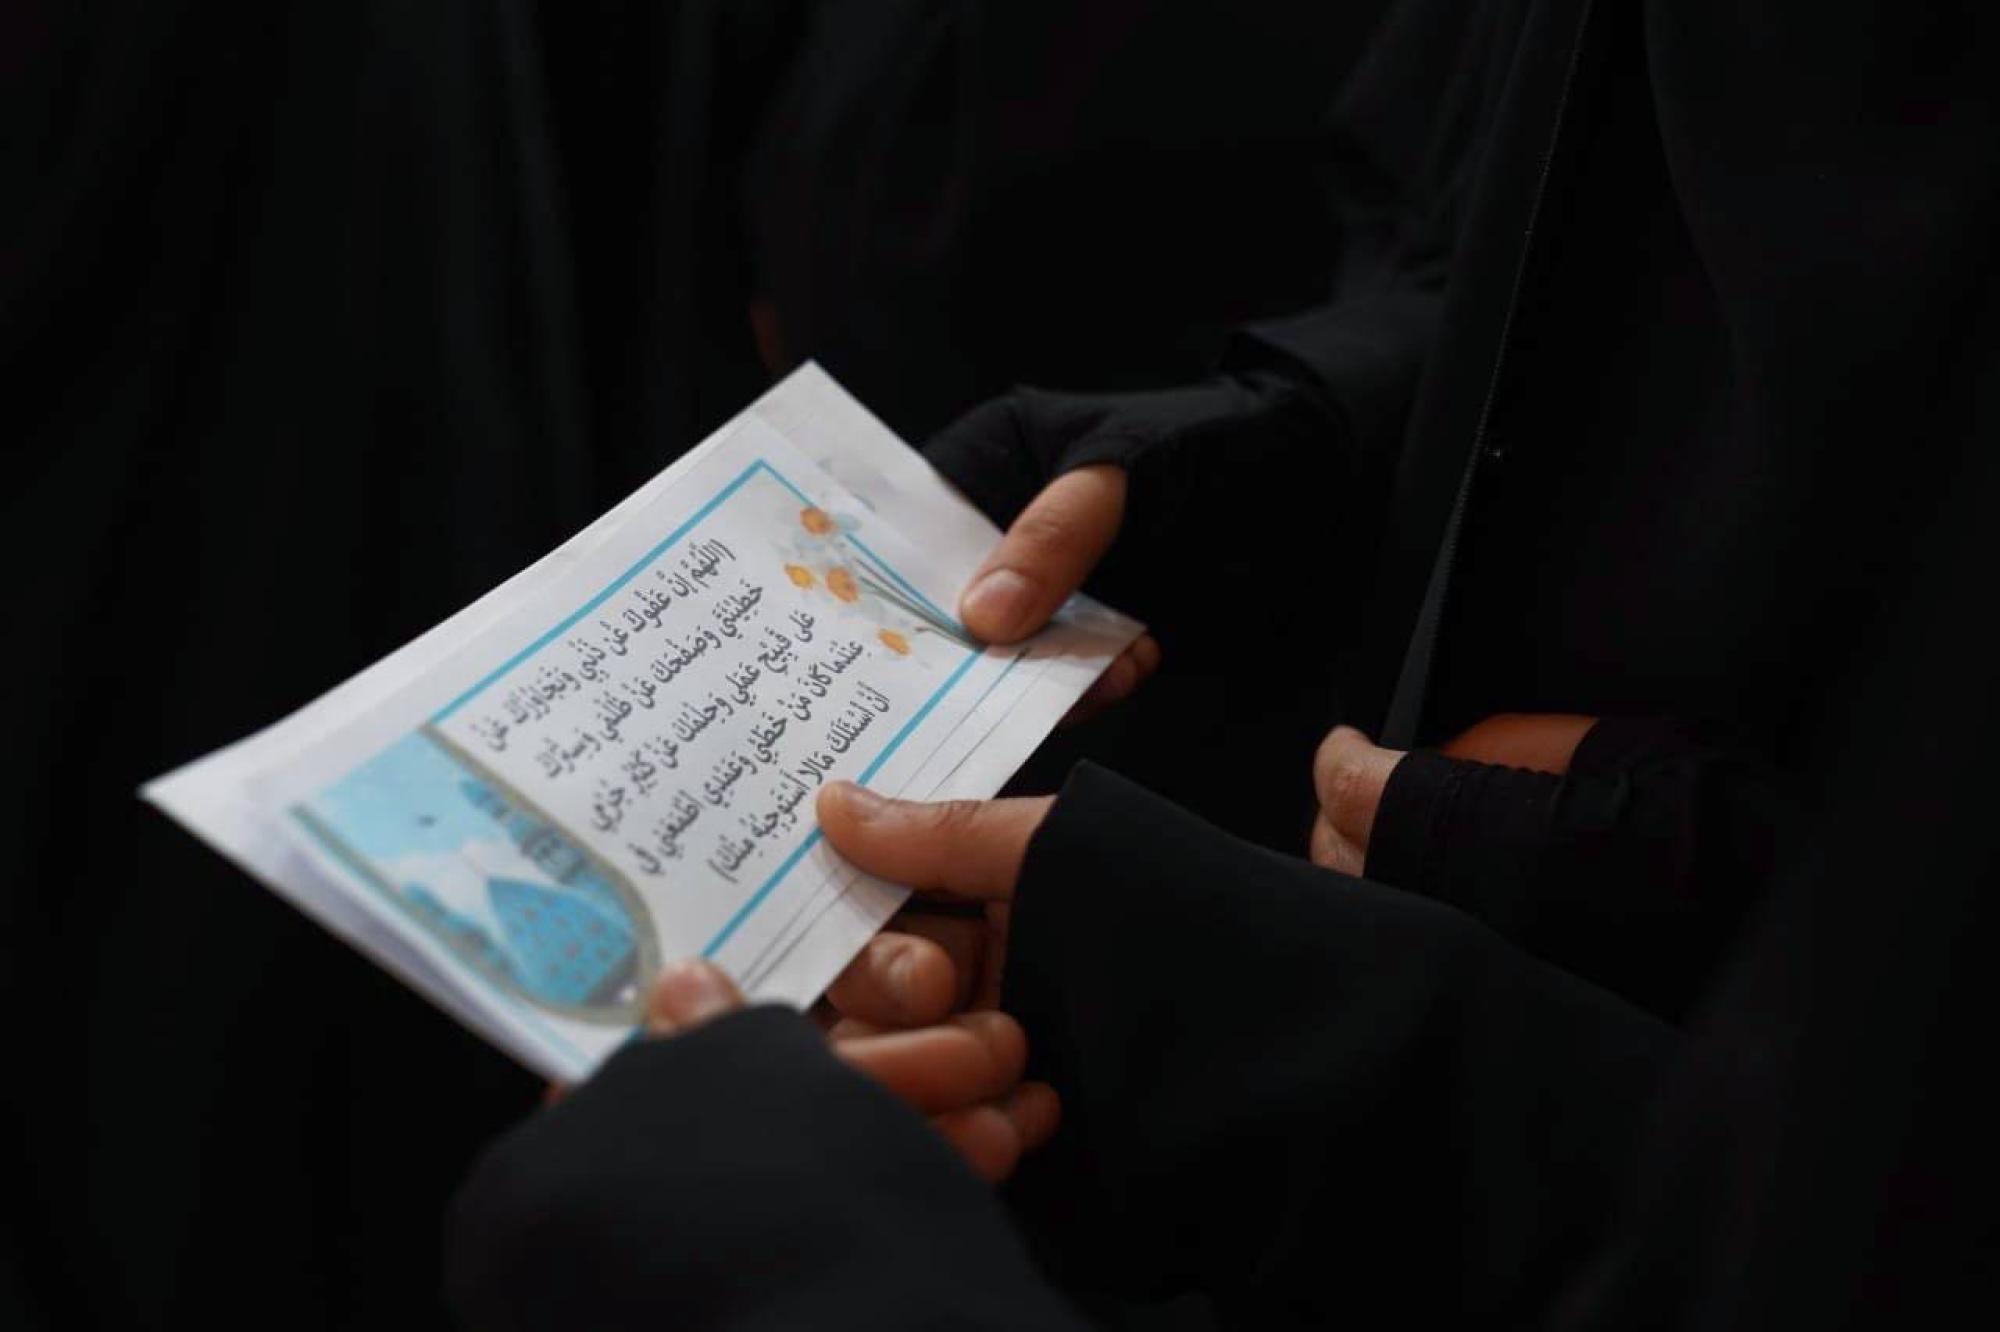 (اللَّهُمَّ إنَّ عَفْوَكَ عَنْ ذَنْبِي وَتَجَاوُزَكَ عَنْ
خَطِيْئَتِي وَصَفْحَكَ عَنْ ظُلْمِي وَسَتْرَكَ
عَلى قَبِيْحِ عَمَلِي وَحِلْمَكَ عَنْ كَثِيْرِ جُرْمِي
عِنْدَما كَانَ مَنْ خَطَئِي وَعَمْدِي اطْمَعَنِي فِي
أنْ أسْئَلَكَ مَالا أسْتَوجِبُهُ مِنْكَ)